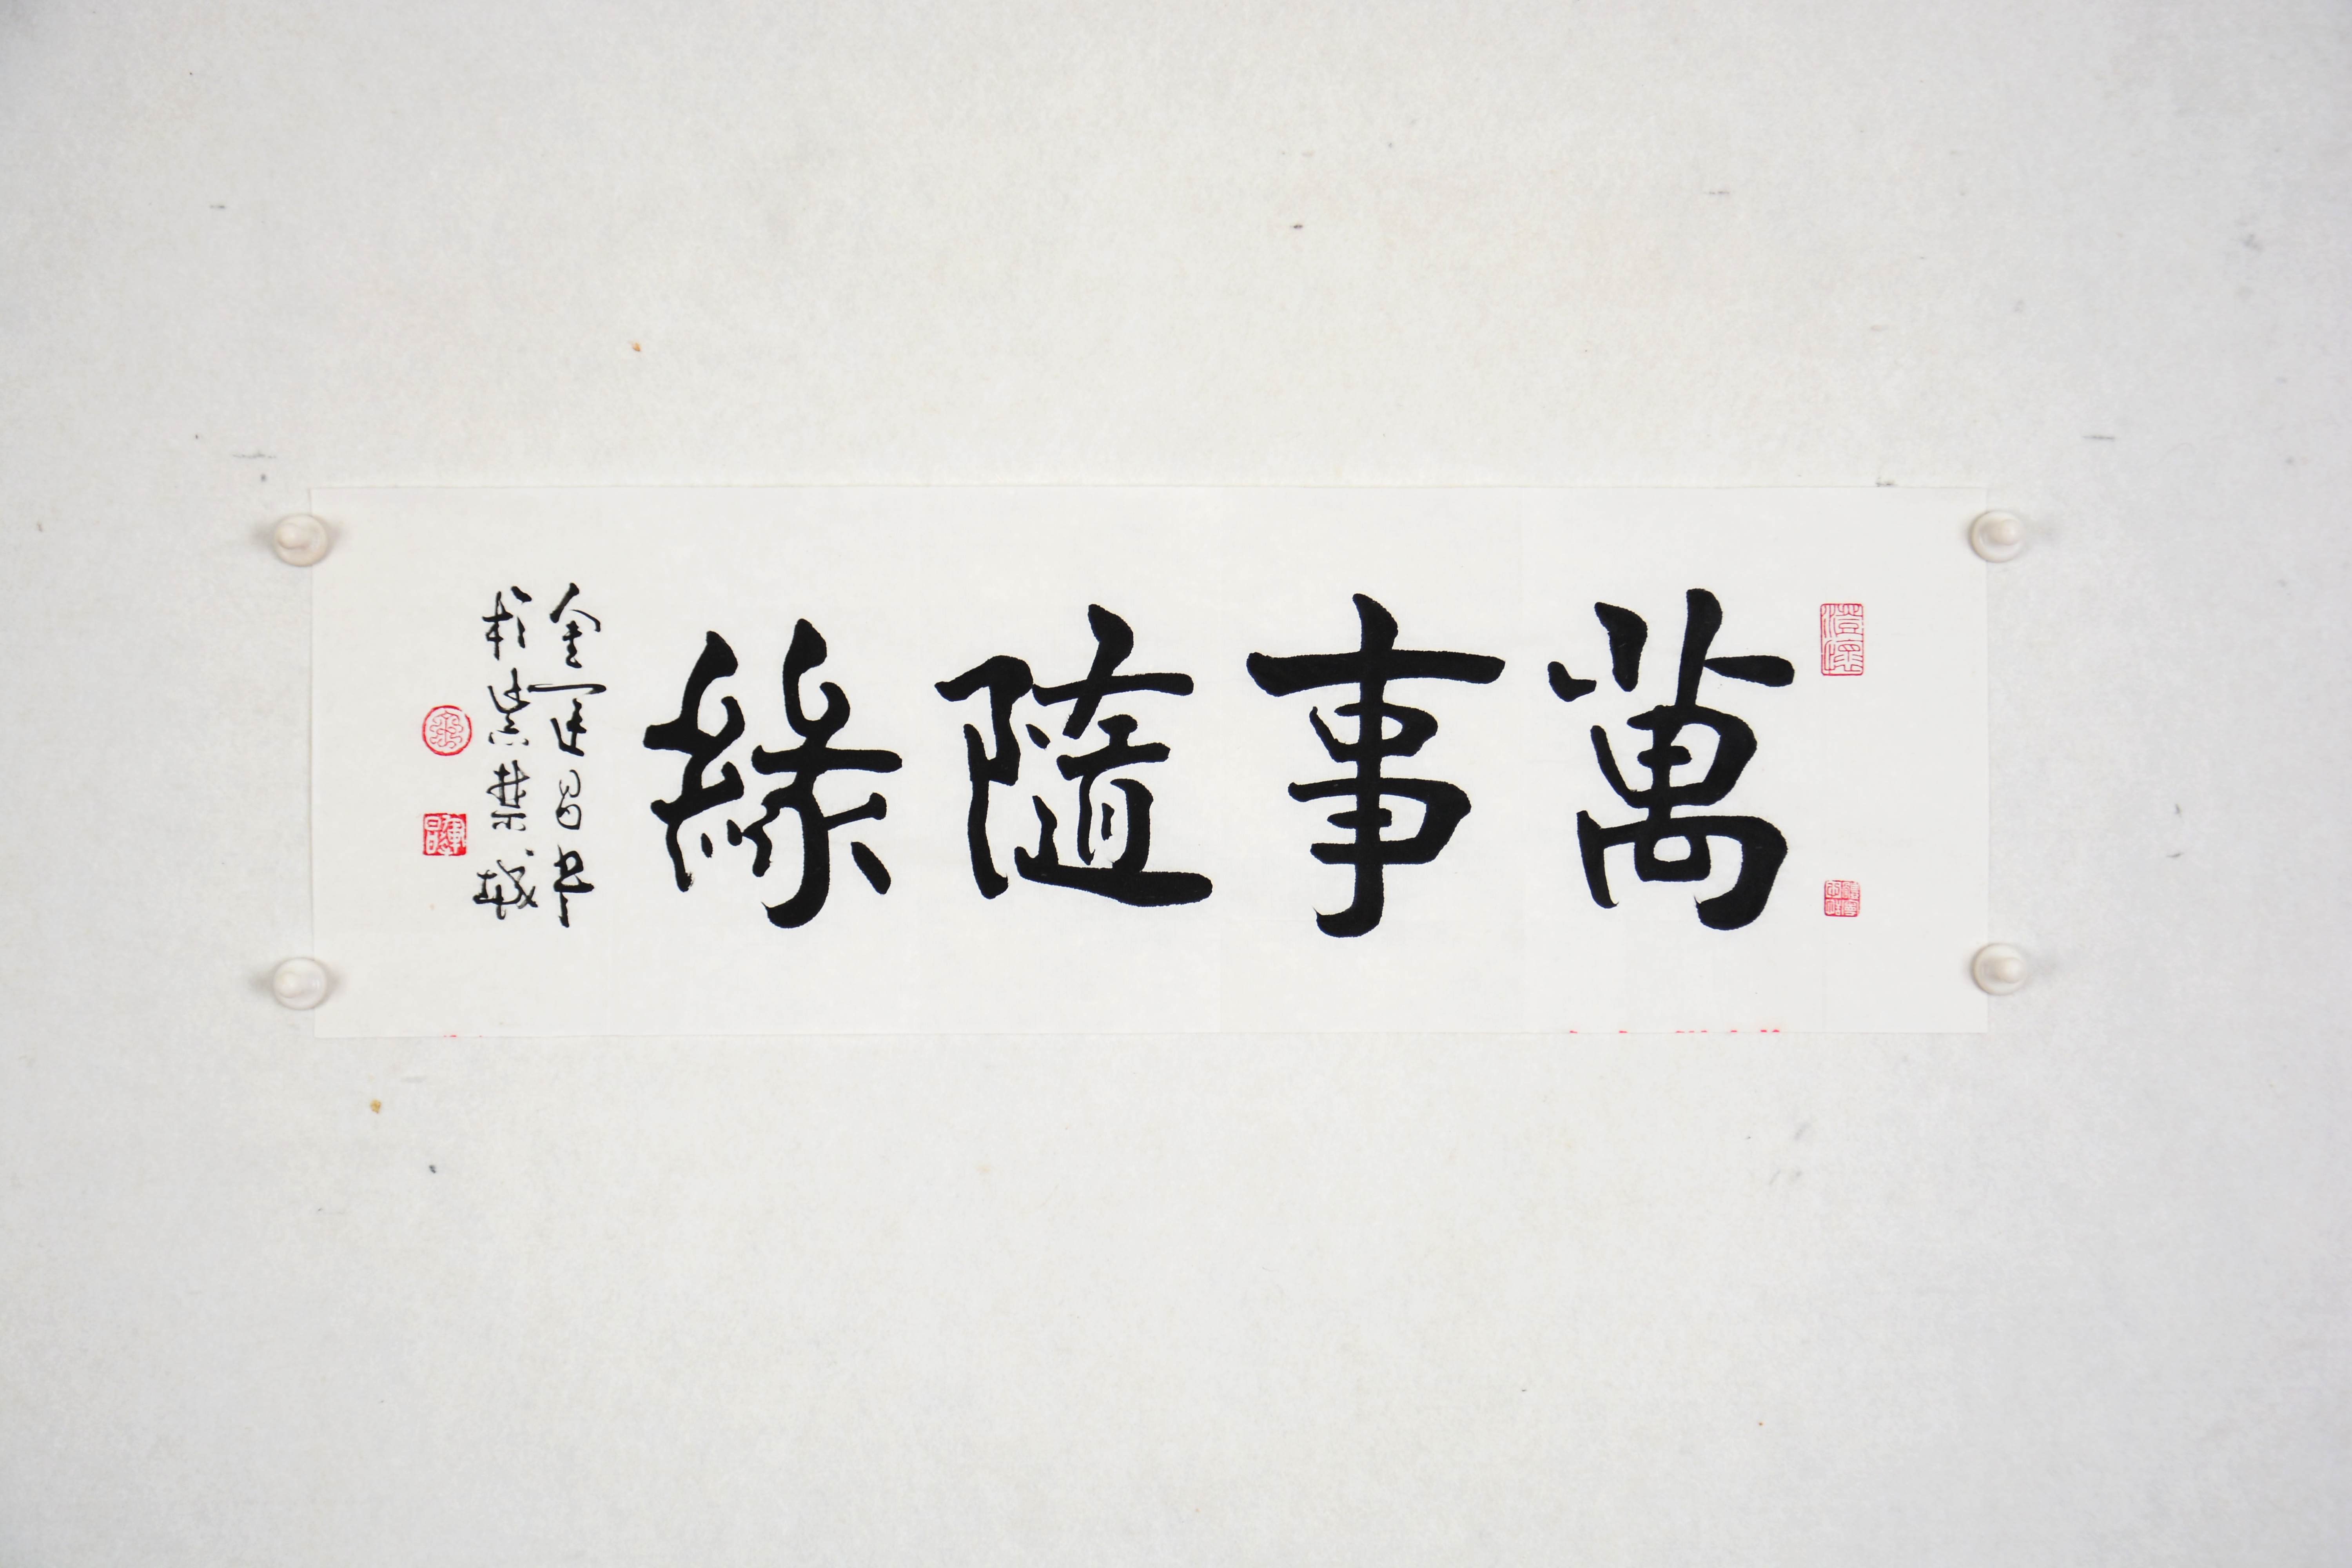 萬事隨緣
金運昌書
於紫禁城